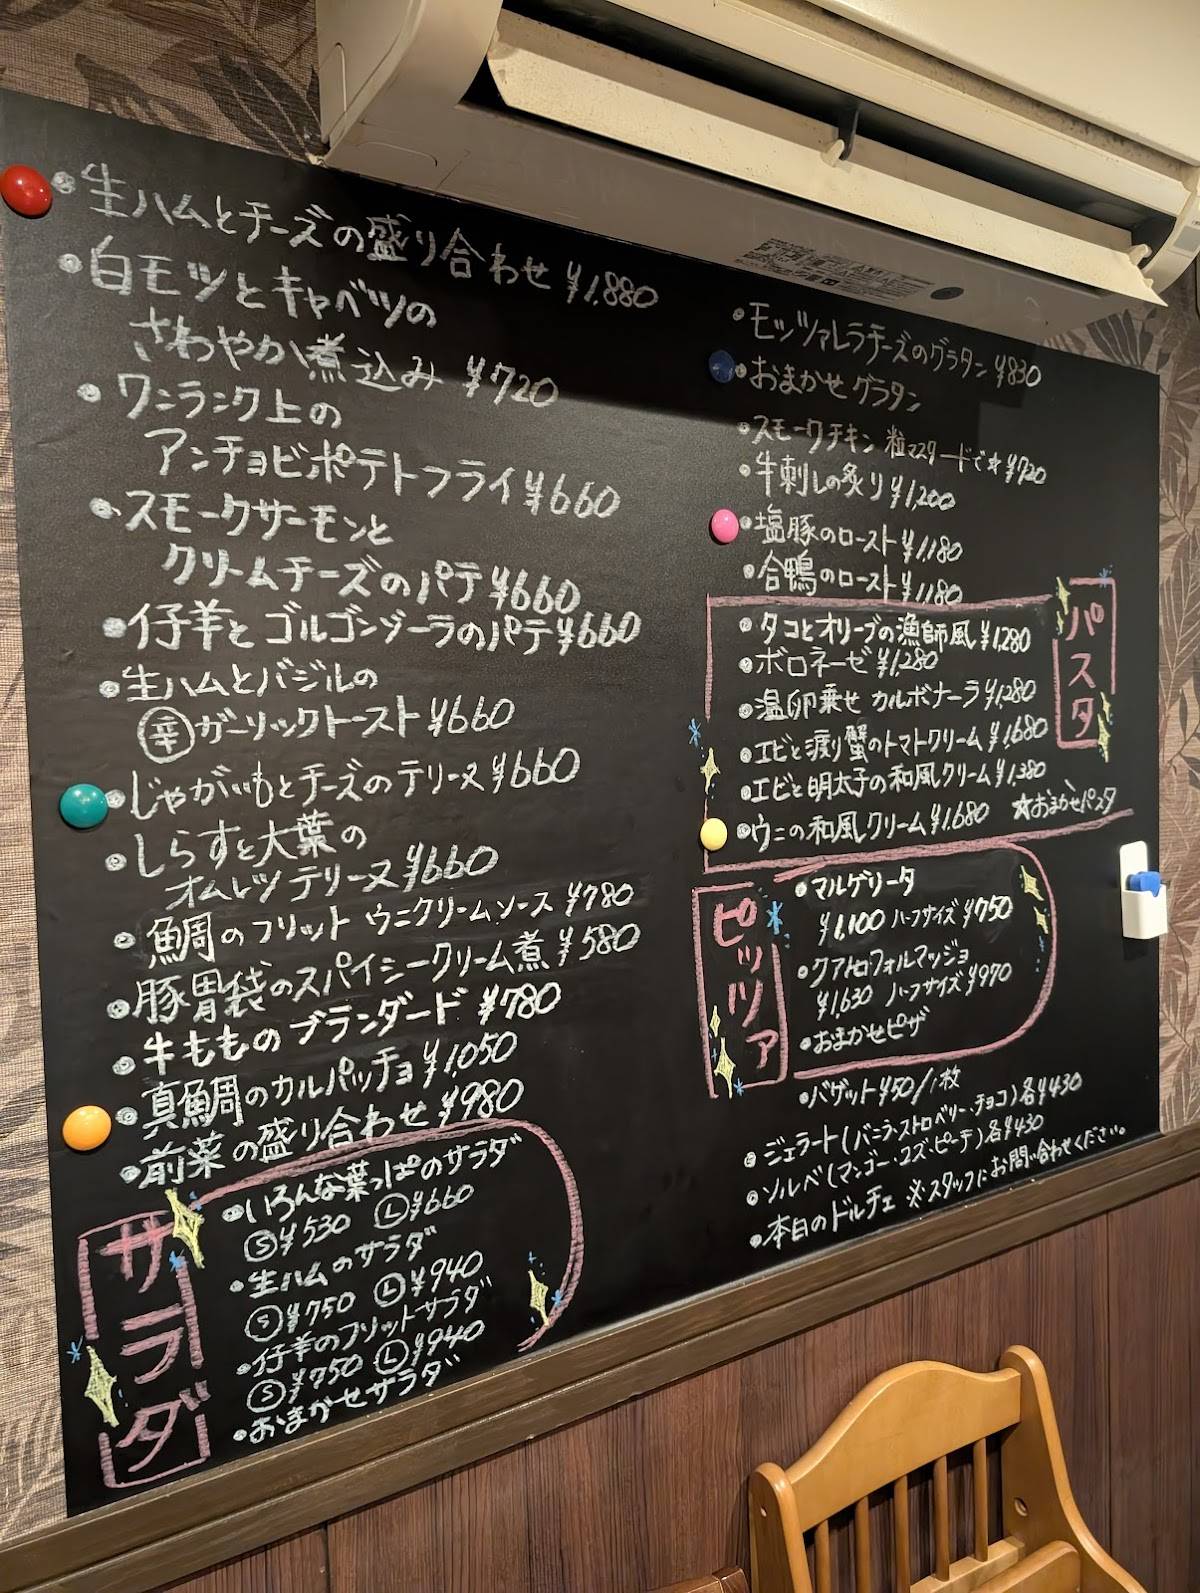 ・生ハムとチーズの盛り合わせ ¥1,880
・白モツとキャベツの
さわやか煮込み ¥720
・ワンランク上の
アンチョビポテトフライ ¥660
・スモークサーモンと
クリームチーズのパテ ¥660
・仔羊とゴルゴンゾーラのパテ ¥660
・生ハムとバジルの
辛ガーリックトースト ¥660
・じゃがいもとチーズのテリーヌ ¥660
・しらすと大葉の
オムレツテリーヌ ¥660
・鯛のフリット ウニクリームソース ¥780
・豚胃袋のスパイシークリーム煮 ¥580
・牛もものブランダード ¥780
・真鯛のカルパッチョ ¥1,050
・前菜の盛り合わせ ¥980
サラダ
・いろんな葉っぱのサラダ
Ⓢ¥530 Ⓛ¥660
・生ハムのサラダ
Ⓢ¥750 Ⓛ¥940
・仔羊のフリットサラダ
Ⓢ¥750 Ⓛ¥940
・おまかせサラダ
・モッツァレラチーズのグラタン ¥830
・おまかせグラタン
・スモークチキン 粒マスタードで☆ ¥720
・牛刺しの炙り ¥1,200
・塩豚のロースト ¥1,180
・合鴨のロースト ¥1,180
パスタ
・タコとオリーブの漁師風 ¥1,280
・ボロネーゼ ¥1,280
・温卵乗せ カルボナーラ ¥1,280
・エビと渡り蟹のトマトクリーム ¥1,680
・エビと明太子の和風クリーム ¥1,380
・ウニの和風クリーム ¥1,680 ☆おまかせパスタ
ピッツァ
・マルゲリータ
¥1,100 ハーフサイズ ¥750
・クアトロフォルマッジョ
¥1,630 ハーフサイズ ¥970
・おまかせピザ
・バゲット ¥50/1枚
・ジェラート(バニラ・ストロベリー・チョコ)各¥430
・ソルベ(マンゴー・ユズ・ピーチ)各¥430
・本日のドルチェ ※スタッフにお問い合わせください。